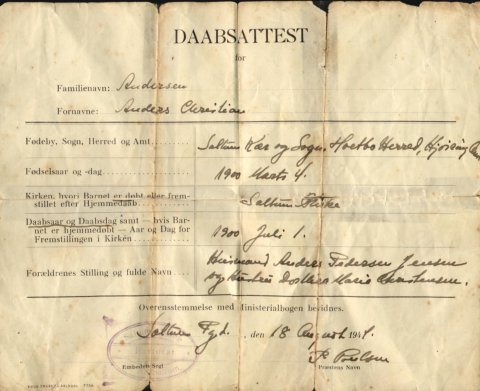 DAABSATTEST
for
Familienavn: Andersen
Fornavne: Anders Christian
Fødeby, Sogn, Herred og Amt. Saltum Kær og Sogn, Hvetbo Herred, Hjørring Amt
Fødselsaar og -dag. 1900 Marts 4.
Kirken, hvori Barnet er døbt eller frem-
stillet efter Hjemmedaab Saltum Kirke
Daabsaar og Daabsdag samt — hvis Bar-
net er hjemmedøbt — Aar og Dag for
Fremstillingen i Kirken 1900 Juli 1.
Husmand Anders Pedersen Jensen
Forældrenes Stilling og fulde Navn og Hustru Dorthea Marie Christensen.
Overensstemmelse med Ministerialbogen bevidnes.
Saltum Pgd. , den 18 August 1941.
Embedets Segl
Præstens Navn